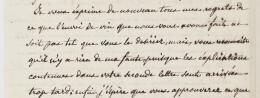 Je vous exprime de nouveau tous mes regrets de
ce que l'envoi de vin que nous vous avons fait ne
soit pas tel que vous le désirez, mais vous reconnaîtrez
qu'il n'y a rien de ma faute puisque les explications
contenues dans votre seconde lettre sont arrivées
trop tard; enfin j'espère que vous approuverez ce que